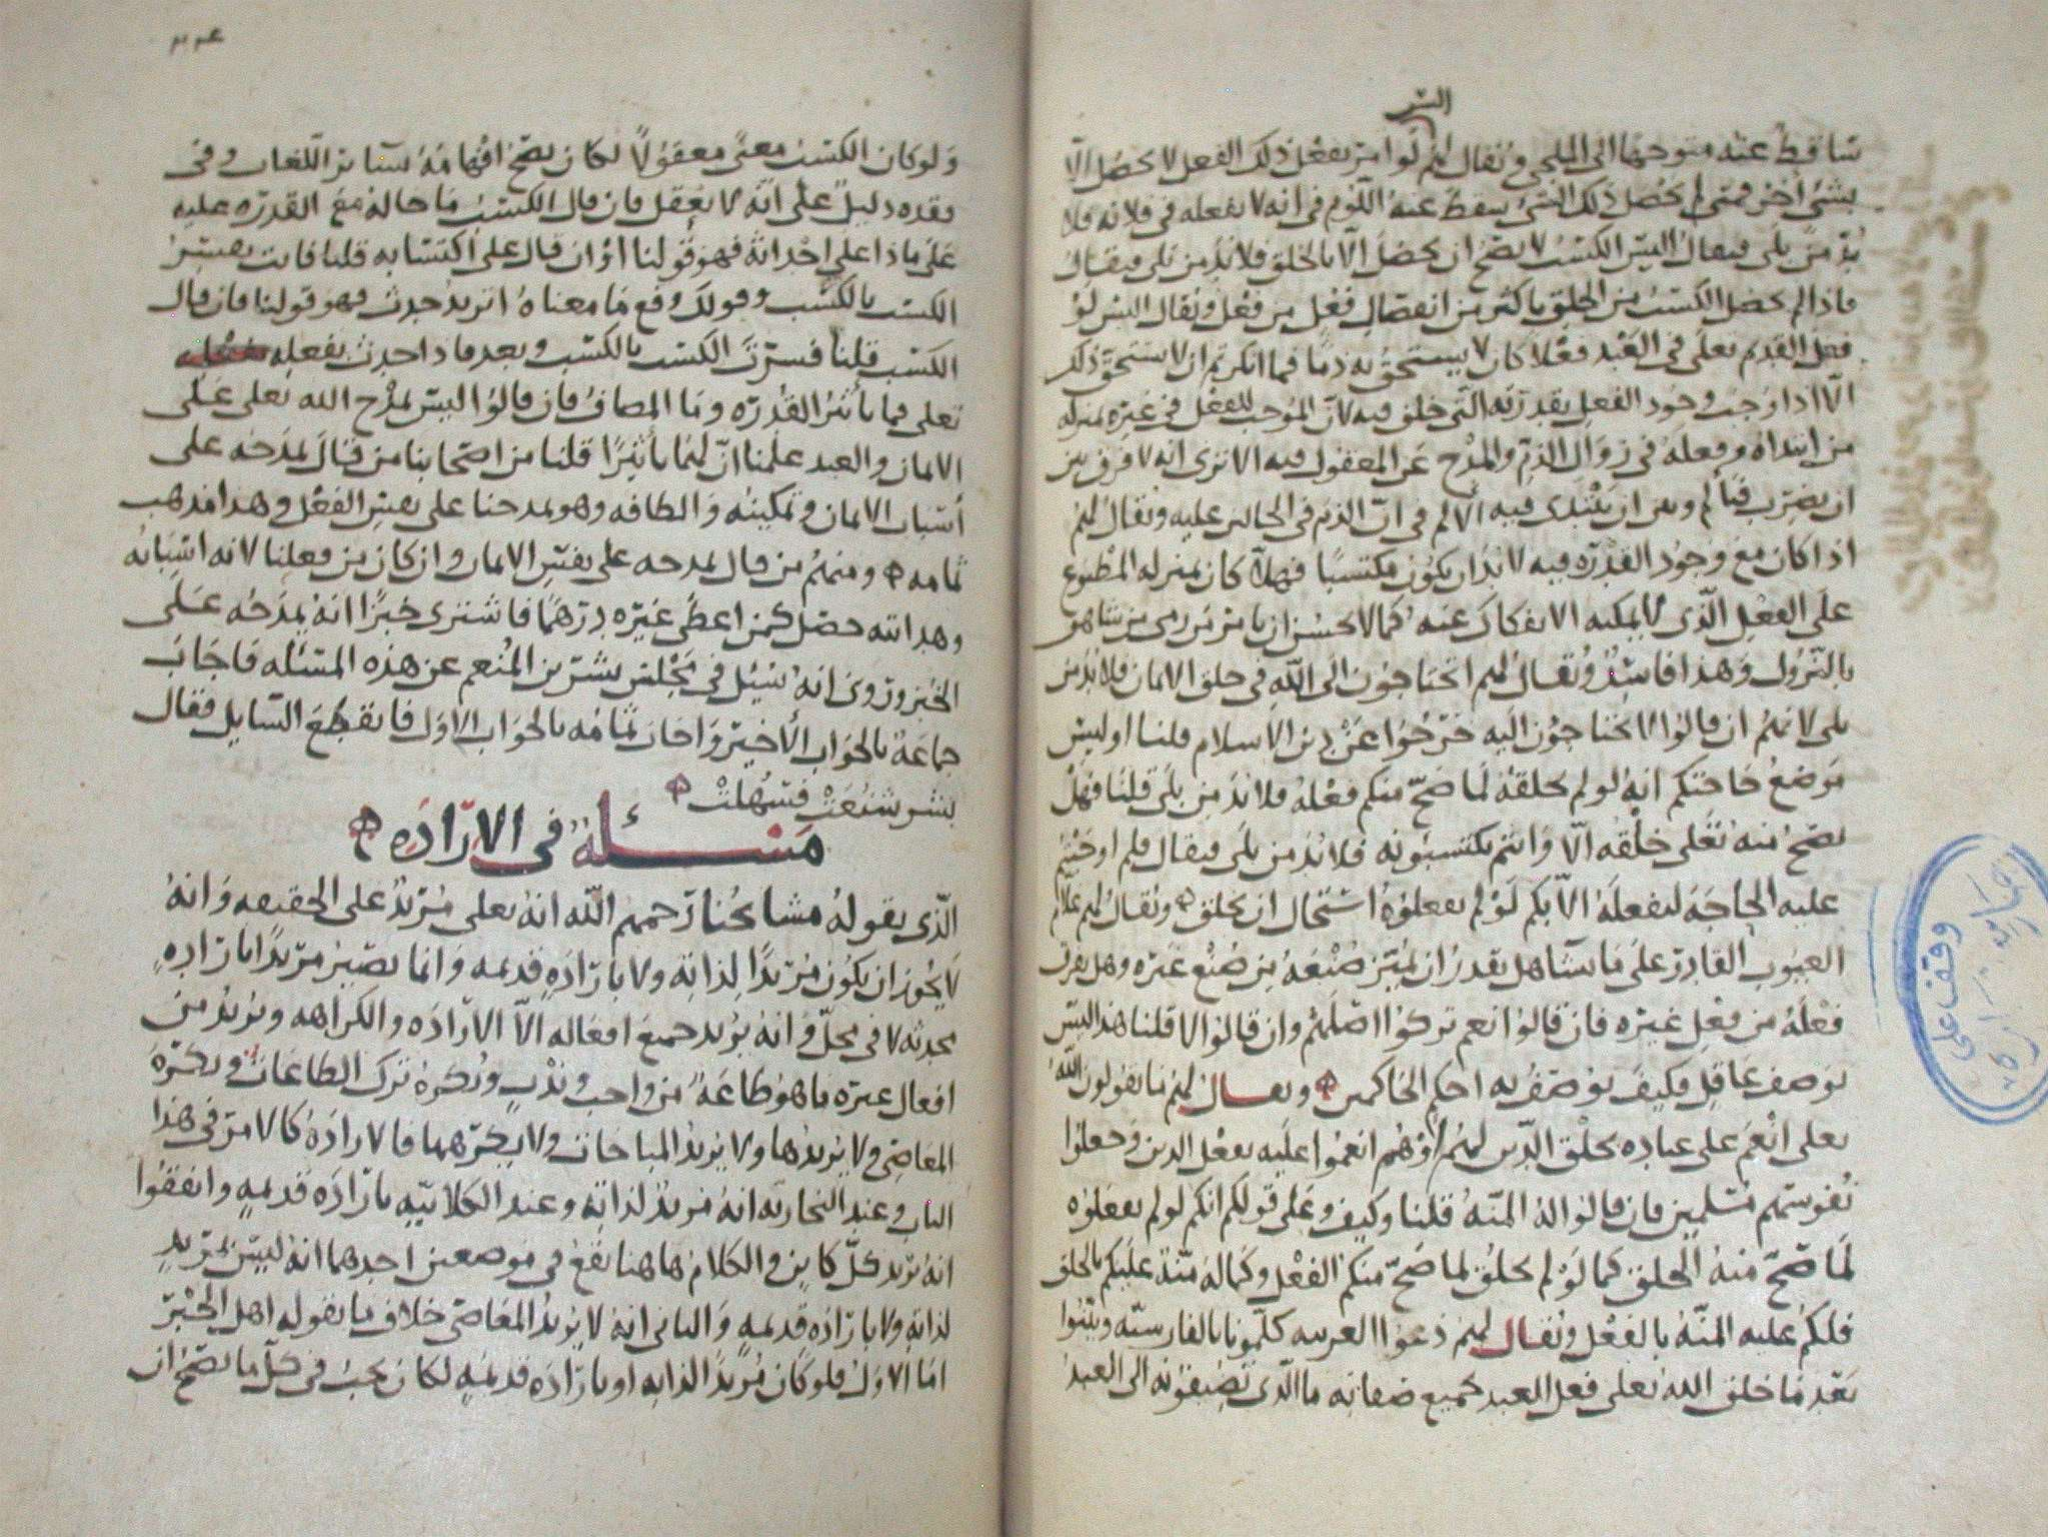 اليس
ساقط عنه متوجها الى الملجي ويقال لهم لو امر بفعل ذلك الفعل لا يحصل الا
بشي اخر فمتى لم يحصل ذلك الشي يسقط عنه اللوم في انه لا يفعله في فلانه فلا
بد من بلى فيقال اليس الكسب لا يصح ان يحصل الا بالخلق فلا بد من بلى فيقال
فاذا لم يحصل الكسب من الخلق باكثر من انفصال فعل من فعل ويقال اليس لو
فعل القديم تعلى في العبد فعلا كان لا يستحق به ذما فما انكرتم ان لا يستحق ذلك
الا اذا وجب وجود الفعل بقدرته التي خلق فيه لان الموجب للفعل في غيره بمنزله
من ابتداه وفعله في زوال الذم والمدح عن المفعول فيه الا ترى انه لا فرق بين
ان يضرب فيالم وبين ان يبتدى فيه الالم في ان الذم في الحالين عليه ويقال لهم
اذا كان مع وجود القدره فيه لا بد ان يكون مكتسبا فهلا كان بمنزله المطبوع
على الفعل الذي لا يمكنه الانفكاك عنه كما لا يحسن ان يامر من رمى من شاهق
بالنزول وهذا فاسد ويقال لهم اتحتاجون الى الله في خلق الايمان فلا بد من
بلى لانهم ان قالوا لا نحتاجون اليه خرجوا عن دين الاسلام قلنا اوليس
موضع حاجتكم انه لو لم يخلقه لما صح منكم فعله فلا بد من بلى قلنا فهل
يصح منه تعلى خلقه الا وانتم تكتسبونه فلا بد من بلى فيقال فلم اوجبتم
عليه الحاجة ليفعله الا بكم لو لم تفعلوه استحال ان يخلق ويقال لهم علام
العيوب القادر على ما يشا هل يقدر ان يميز صنعه من صنع غيره وهل يعرف
فعله من فعل غيره فان قالوا نعم تركوا اصلهم وان قالوا لا قلنا هذا ليس
يوصف عاقل فكيف يوصف به احكم الحاكمين ويقال لهم ما تقولون الله
تعلى انعم على عباده بخلق الدين لهم او هم انعموا عليه بفعل الدين وجعلوا
نفوسهم مسلمين فان قالوا له المنه قلنا وكيف وعلى قولكم انكم لو لم تفعلوه
لما صح منه الخلق كما لو لم يخلق لما صح منكم الفعل وكما له منة عليكم بالخلق
فلكم عليه المنه بالفعل ويقال لهم دعوا العربيه كلمونا بالفارسيه وبينوا
بعد ما خلق الله تعلى فعل العبد بجميع صفاته ما الذي تضيفونه الى العبد
ولو كان الكسب معنى معقولا لكان يصح افهامه بساير اللغات وفي
فقده دليل على انه لا يعقل فان قال الكسب ما حاله مع القدره عليه
على ماذا على احداثه فهو قولنا او ان قال على اكتسابه قلنا فانت تفسر
الكسب بالكسب وقولك وقع ما معناه اتريد حدث فهو قولنا فان قال
الكسب قلنا فسرت الكسب بالكسب وبعد فاذا حدث بفعله
تعلى فما تاثير القدره وما المضاف فان قالوا اليس يمدح الله تعلى على
الايمان والعبد علمنا ان لهما تاثيرا قلنا من اصحابنا من قال يمدحه على
اسباب الايمان وتمكينه والطافه وهو يمدحنا على نفس الفعل وهذا مذهب
ثمامه ومنهم من قال يمدحه على نفس الايمان وان كان من فعلنا لانه اسبابه
وهدايته حصل كمن اعطى غيره درهما فاشترى خبزا انه يمدحه على
الخبز وروى انه سيل في مجلس بشر بن المعتمر عن هذه المسئله فاجاب
جماعة بالجواب الاخير واجاب ثمامه بالجواب الاول فانقطع السايل فقال
بشر شنعت فسهلت
مسئلة في الاراده
الذي يقوله مشايخنا رحمهم الله انه تعلى مريد على الحقيقه وانه
لا يجوز ان يكون مريدا لذاته ولا باراده قديمه وانما يصير مريدا باراده
محدثه لا في محل وانه يريد جميع افعاله الا الاراده والكراهه ويريد من
افعال غيره ما هو طاعة من واجب وندب ويكره ترك الطاعات ويكره
المعاصي ولا يريدها ولا يريد المباحات ولا يكرهها فالاراده كالامر في هذا
الباب وعند النجاريه انه مريد لذاته وعند الكلابيه باراده قديمه واتفقوا
انه يريد كل كاين والكلام هاهنا يقع في موضعين احدهما انه ليس بمريد
لذاته ولا باراده قديمه والثاني انه لا يريد المعاصي خلاف ما يقوله اهل الجبر
اما الاول فلو كان مريدا لذاته او باراده قديمه لكان يجب في كل ما يصح ان
وقف على